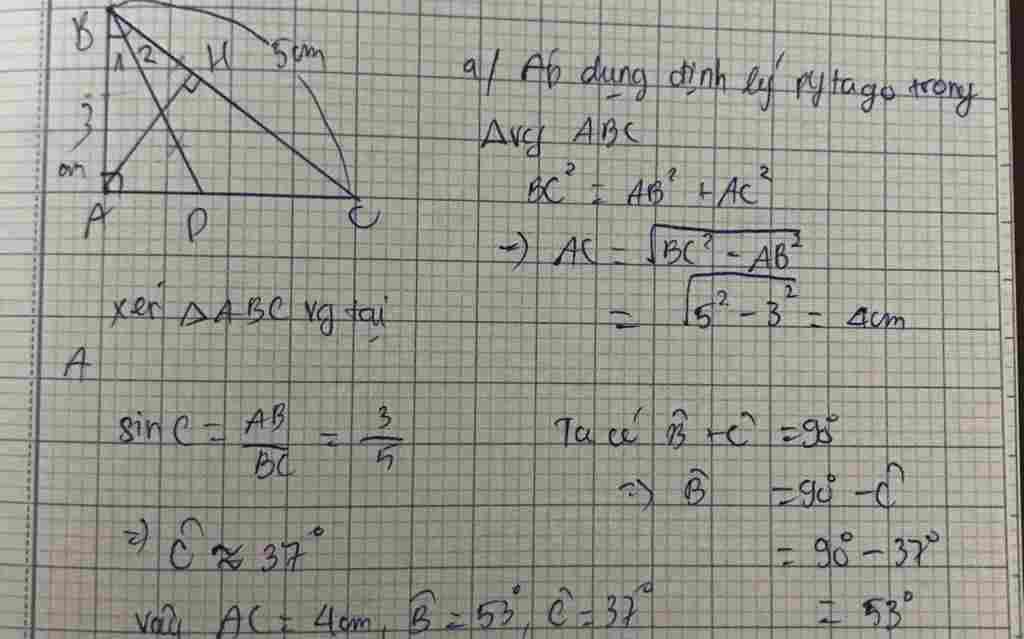 B
1 2
H
5cm
3
cm
A
D
C
a/ Áp dụng định lý pytago trong
Δvg ABC
BC² = AB² + AC²
→) AC = √(BC² - AB²)
= √(5² - 3²) = 4cm
xét ΔABC vg tại
A
sin C = AB/BC = 3/5
=) Ĉ ≈ 37°
Ta có B̂ + Ĉ = 90°
=) B̂ = 90° - Ĉ
= 90° - 37°
= 53°
vậy AC = 4cm, B̂ = 53°, Ĉ = 37°